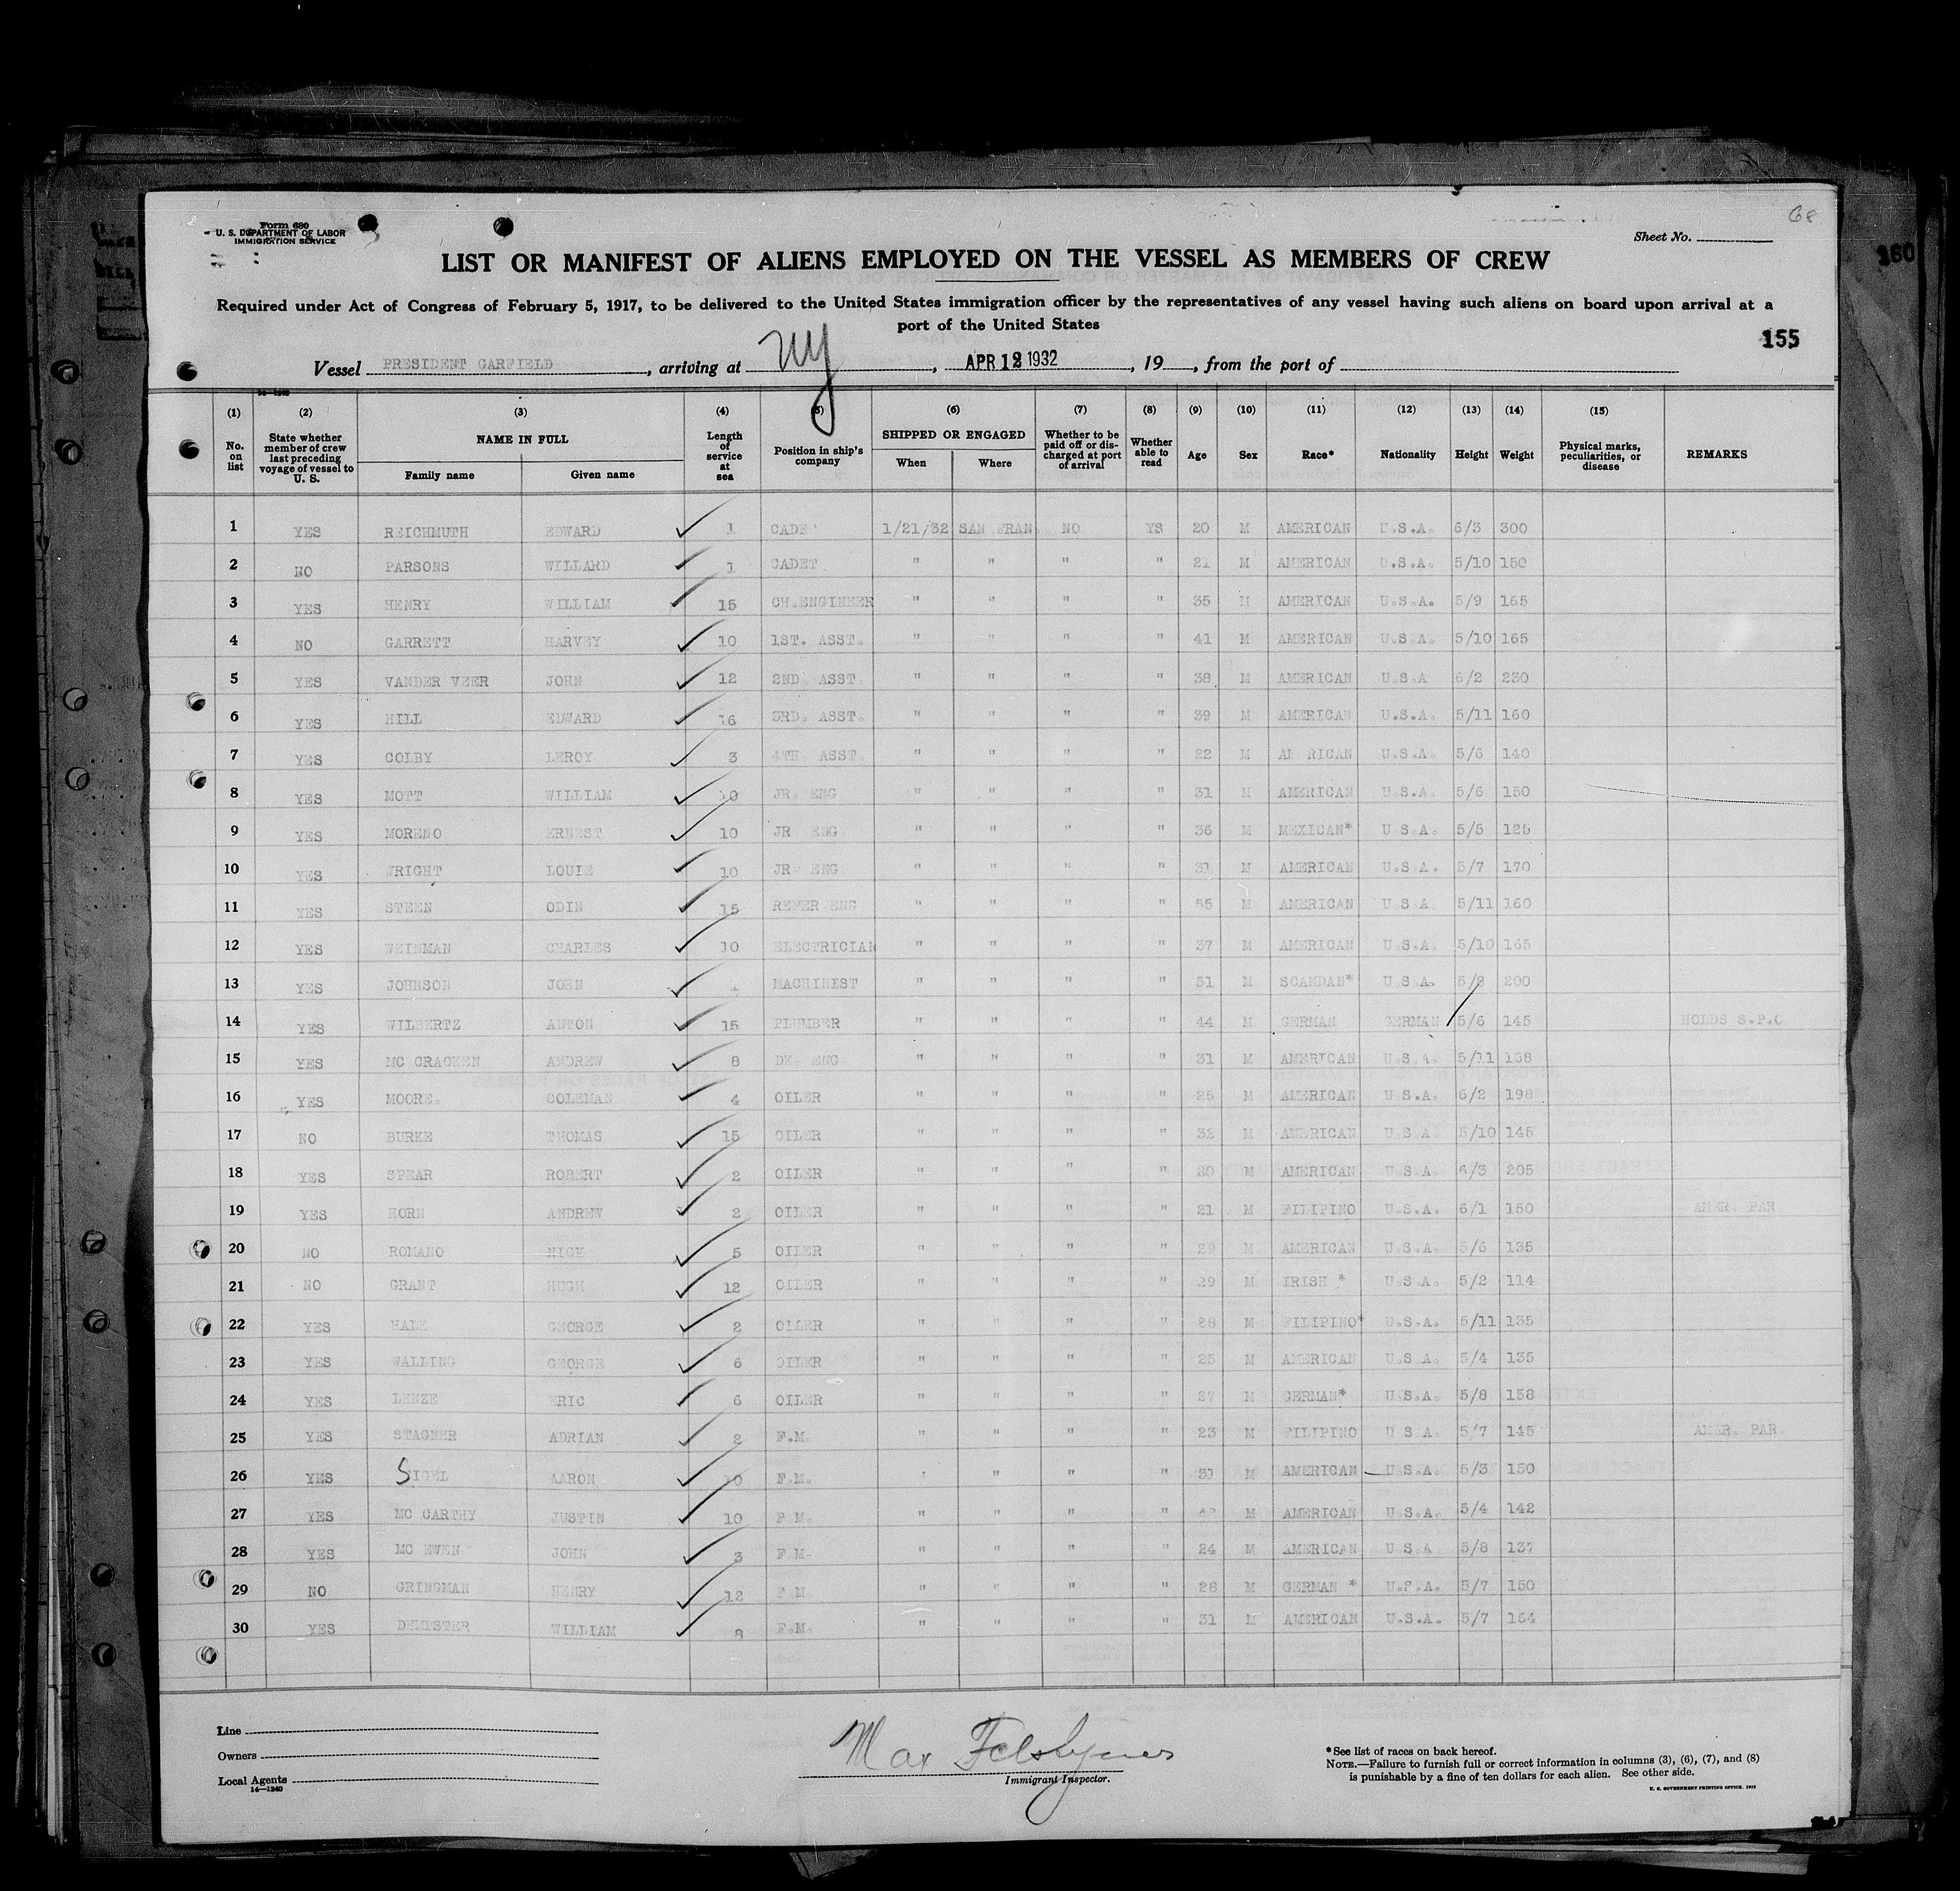 68
Form 680
U. S. DEPARTMENT OF LABOR
IMMIGRATION SERVICE
Sheet No.
160
LIST OR MANIFEST OF ALIENS EMPLOYED ON THE VESSEL AS MEMBERS OF CREW
Required under Act of Congress of February 5, 1917, to be delivered to the United States immigration officer by the representatives of any vessel having such aliens on board upon arrival at a
port of the United States
155
Vessel PRESIDENT GARFIELD, arriving at NY, APR 12 1932, 19, from the port of
14—1240
(1) (2) (3) (4) (5) (6) (7) (8) (9) (10) (11) (12) (13) (14) (15)
No. on list State whether member of crew last preceding voyage of vessel to U. S. NAME IN FULL Family name Given name Length of service at sea Position in ship's company SHIPPED OR ENGAGED When Where Whether to be paid off or discharged at port of arrival Whether able to read Age Sex Race* Nationality Height Weight Physical marks, peculiarities, or disease REMARKS
1 YES REICHMUTH EDWARD 1 CADE 1/21/32 SAN FRAN NO YS 20 M AMERICAN U.S.A. 6/3 300
2 NO PARSONS WILLARD 1 CADET " " " " 21 M AMERICAN U.S.A. 5/10 150
3 YES HENRY WILLIAM 15 CH.ENGINEER " " " " 35 M AMERICAN U.S.A. 5/9 165
4 NO GARRETT HARVEY 10 1ST. ASST. " " " " 41 M AMERICAN U.S.A. 5/10 165
5 YES VANDER VEER JOHN 12 2ND. ASST. " " " " 38 M AMERICAN U.S.A 6/2 230
6 YES HILL EDWARD 16 3RD. ASST. " " " " 39 M AMERICAN U.S.A. 5/11 160
7 YES COLBY LEROY 3 4TH. ASST. " " " " 22 M AM RICAN U.S.A. 5/6 140
8 YES MOTT WILLIAM 10 JR. ENG " " " " 31 M AMERICAN U.S.A. 5/6 150
9 YES MORENO ERNEST 10 JR ENG " " " " 36 M MEXICAN* U S.A. 5/5 125
10 YES WRIGHT LOUIE 10 JR ENG " " " " 31 M AMERICAN U.S.A. 5/7 170
11 YES STEEN ODIN 15 REFER ENG " " " " 55 M AMERICAN U.S.A. 5/11 160
12 YES WEINMAN CHARLES 10 ELECTRICIAN " " " " 37 M AMERICAN U.S.A. 5/10 165
13 YES JOHNSON JOHN MACHINEST " " " " 51 M SCANDAN* U.S.A. 5/8 200
14 YES WILBERTZ ANTON 15 PLUMBER " " " " 44 M GERMAN GERMAN 5/6 145 HOLDS S.P.O
15 YES MC CRACKEN ANDREW 8 DK. ENG " " " " 31 M AMERICAN U.S.A. 5/11 168
16 YES MOORE. COLEMAN 4 OILER " " " " 25 M AMERICAN U S.A. 6/2 198
17 NO BURKE THOMAS 15 OILER " " " " 32 M AMERICAN U S A 5/10 145
18 YES SPEAR ROBERT 2 OILER " " " " 30 M AMERICAN U.S.A 6/3 205
19 YES HORN ANDREW 2 OILER " " " " 21 M FILIPINO U.S.A. 6/1 150 AMER. PAR
20 NO ROMANO NICK 5 OILER " " " " 29 M AMERICAN U.S.A. 5/6 135
21 NO GRANT HUGH 12 OILER " " " " 29 M IRISH * U.S.A. 5/2 114
22 YES HALE GEORGE 2 OILER " " " " 28 M FILIPINO* U.S.A. 5/11 135
23 YES WALLING GEORGE 6 OILER " " " " 25 M AMERICAN U.S.A. 5/4 135
24 YES LENZE ERIC 6 OILER " " " " 27 M GERMAN* U.S.A. 5/8 158
25 YES STAGNER ADRIAN 2 F.M. " " " " 23 M FILIPINO U S A. 5/7 145 AMER. PAR.
26 YES SIGEL AARON 10 F.M. " " " 31 M AMERICAN U.S.A. 5/3 150
27 YES MC CARTHY JUSTIN 10 F.M. " " " " M AMERICAN U.S.A. 5/4 142
28 YES MC EWEN JOHN 3 F.M. " " " " 24 M AMERICAN U S A 5/8 137
29 NO GRINGMAN HENRY 12 F.M. " " " " 28 M GERMAN * U.S.A. 5/7 150
30 YES DEMPSTER WILLIAM 8 F.M. " " " " 31 M AMERICAN U.S.A. 5/7 164
Line
Owners
Local Agents
14—1240
Max Felshyner
Immigrant Inspector.
*See list of races on back hereof.
NOTE.—Failure to furnish full or correct information in columns (3), (6), (7), and (8)
is punishable by a fine of ten dollars for each alien. See other side.
U. S. GOVERNMENT PRINTING OFFICE